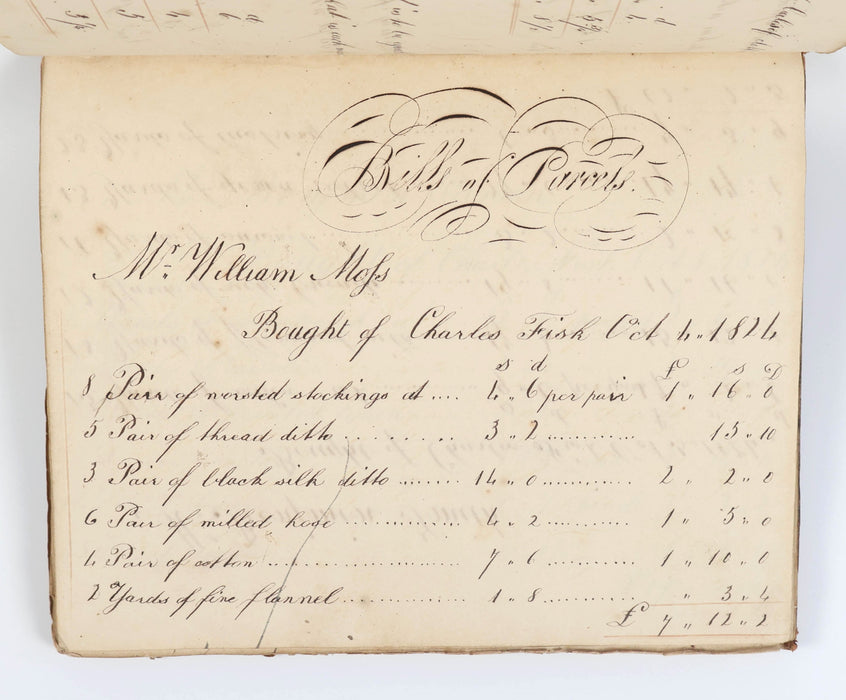 Bills of Parcels.
Mr. William Moſs
Bought of Charles Fish Oct 4 „ 1824
s d £ s D
8 Pair of worsted stockings at .... 4 „ 6 per pair 1 „ 16 „ 0
5 Pair of thread ditto ........ 3 „ 2 ............ 15 „ 10
3 Pair of black silk ditto ........ 14 „ 0 ............ 2 „ 2 „ 0
6 Pair of milled hose ............... 4 „ 2 ............ 1 „ 5 „ 0
4 Pair of cotton ........................ 7 „ 6 ............ 1 „ 10 „ 0
2 Yards of fine flannel ............... 1 „ 8 ............ „ 3 „ 4
£ 7 „ 12 „ 2